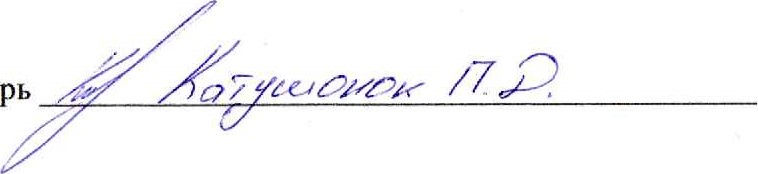 рь Катушонок П.Д.